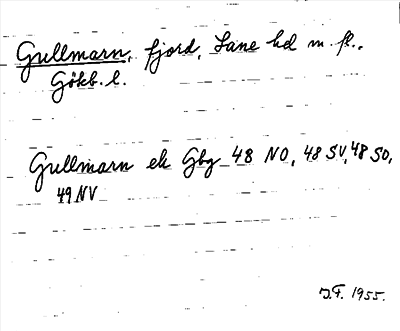 Gullmarn, fjord, Lane hd m. fl.,
Gökb. l.
Gullmarn ek Gbg 48 NO, 48 SV, 48 SO,
49 NV
J.F. 1955.